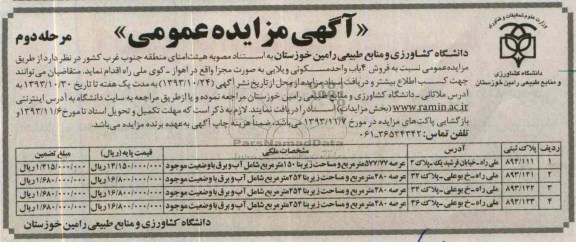 وزارت علوم تحقیقات و فناوری
دانشگاه کشاورزی
و منابع طبیعی رامین خوزستان
«آگهی مزایده عمومی»
مرحله دوم
دانشگاه کشاورزی و منابع طبیعی رامین خوزستان به استناد مصوبه هیئت‌امنای منطقه جنوب غرب کشور در نظر دارد از طریق
مزایده‌عمومی نسبت به فروش ۴باب واحدمسکونی ویلایی به صورت مجزا واقع در اهواز -کوی ملی راه اقدام نماید. متقاضیان می‌توانند
جهت کسب اطلاع بیشتر و دریافت اسناد مزایده از محل از تاریخ نشر آگهی (۱۳۹۳/۱۰/۲۴) به مدت یک هفته تا تاریخ ۱۳۹۳/۱۰/۳۰ به
آدرس ملاثانی ـ دانشگاه کشاورزی و منابع طبیعی رامین خوزستان مراجعه نموده و یا از طریق مراجعه به سایت دانشگاه به آدرس اینترنتی
www.ramin.ac.ir (بخش مزایدات) اسناد را دریافت نمایند لازم به ذکر است که مهلت تکمیل و تحویل اسناد تا مورخ ۱۳۹۳/۱۱/۶ و
بازگشایی پاکت‌های مزایده در مورخ ۱۳۹۳/۱۱/۷ می‌باشد، ضمناً هزینه چاپ آگهی به‌عهده برنده مزایده می‌باشد.
تلفن تماس: ۰۶۱-۳۶۵۲۴۳۴۲
ردیف پلاک ثبتی آدرس مشخصات ملکی قیمت پایه(ریال) مبلغ تضمین
۱ ۸۹۴/۱۱۱ ملی راه-خیابان فرشید یک -پلاک۲ عرصه ۵۷۷/۷۷مترمربع و مساحت زیربنا ۱۵۰مترمربع شامل آب و برق با وضعیت موجود ۱۴/۱۵۰/۰۰۰/۰۰۰ریال ۱/۴۱۵/۰۰۰/۰۰۰ریال
۲ ۸۹۴/۱۲۱ ملی راه-خ بوعلی -پلاک ۳۲ عرصه ۴۸۰مترمربع و مساحت زیربنا ۲۵۲مترمربع شامل آب و برق با وضعیت موجود ۱۶/۸۰۰/۰۰۰/۰۰۰ریال ۱/۶۸۰/۰۰۰/۰۰۰ریال
۳ ۸۹۴/۱۲۲ ملی راه-خ بوعلی -پلاک ۳۴ عرصه ۴۸۰مترمربع و مساحت زیربنا ۲۵۲مترمربع شامل آب و برق با وضعیت موجود ۱۶/۸۰۰/۰۰۰/۰۰۰ریال ۱/۶۸۰/۰۰۰/۰۰۰ریال
۴ ۸۹۴/۱۲۳ ملی راه-خ بوعلی -پلاک ۳۶ عرصه ۴۸۰مترمربع و مساحت زیربنا ۲۵۲مترمربع شامل آب و برق با وضعیت موجود ۱۶/۸۰۰/۰۰۰/۰۰۰ریال ۱/۶۸۰/۰۰۰/۰۰۰ریال
دانشگاه کشاورزی و منابع طبیعی رامین خوزستان